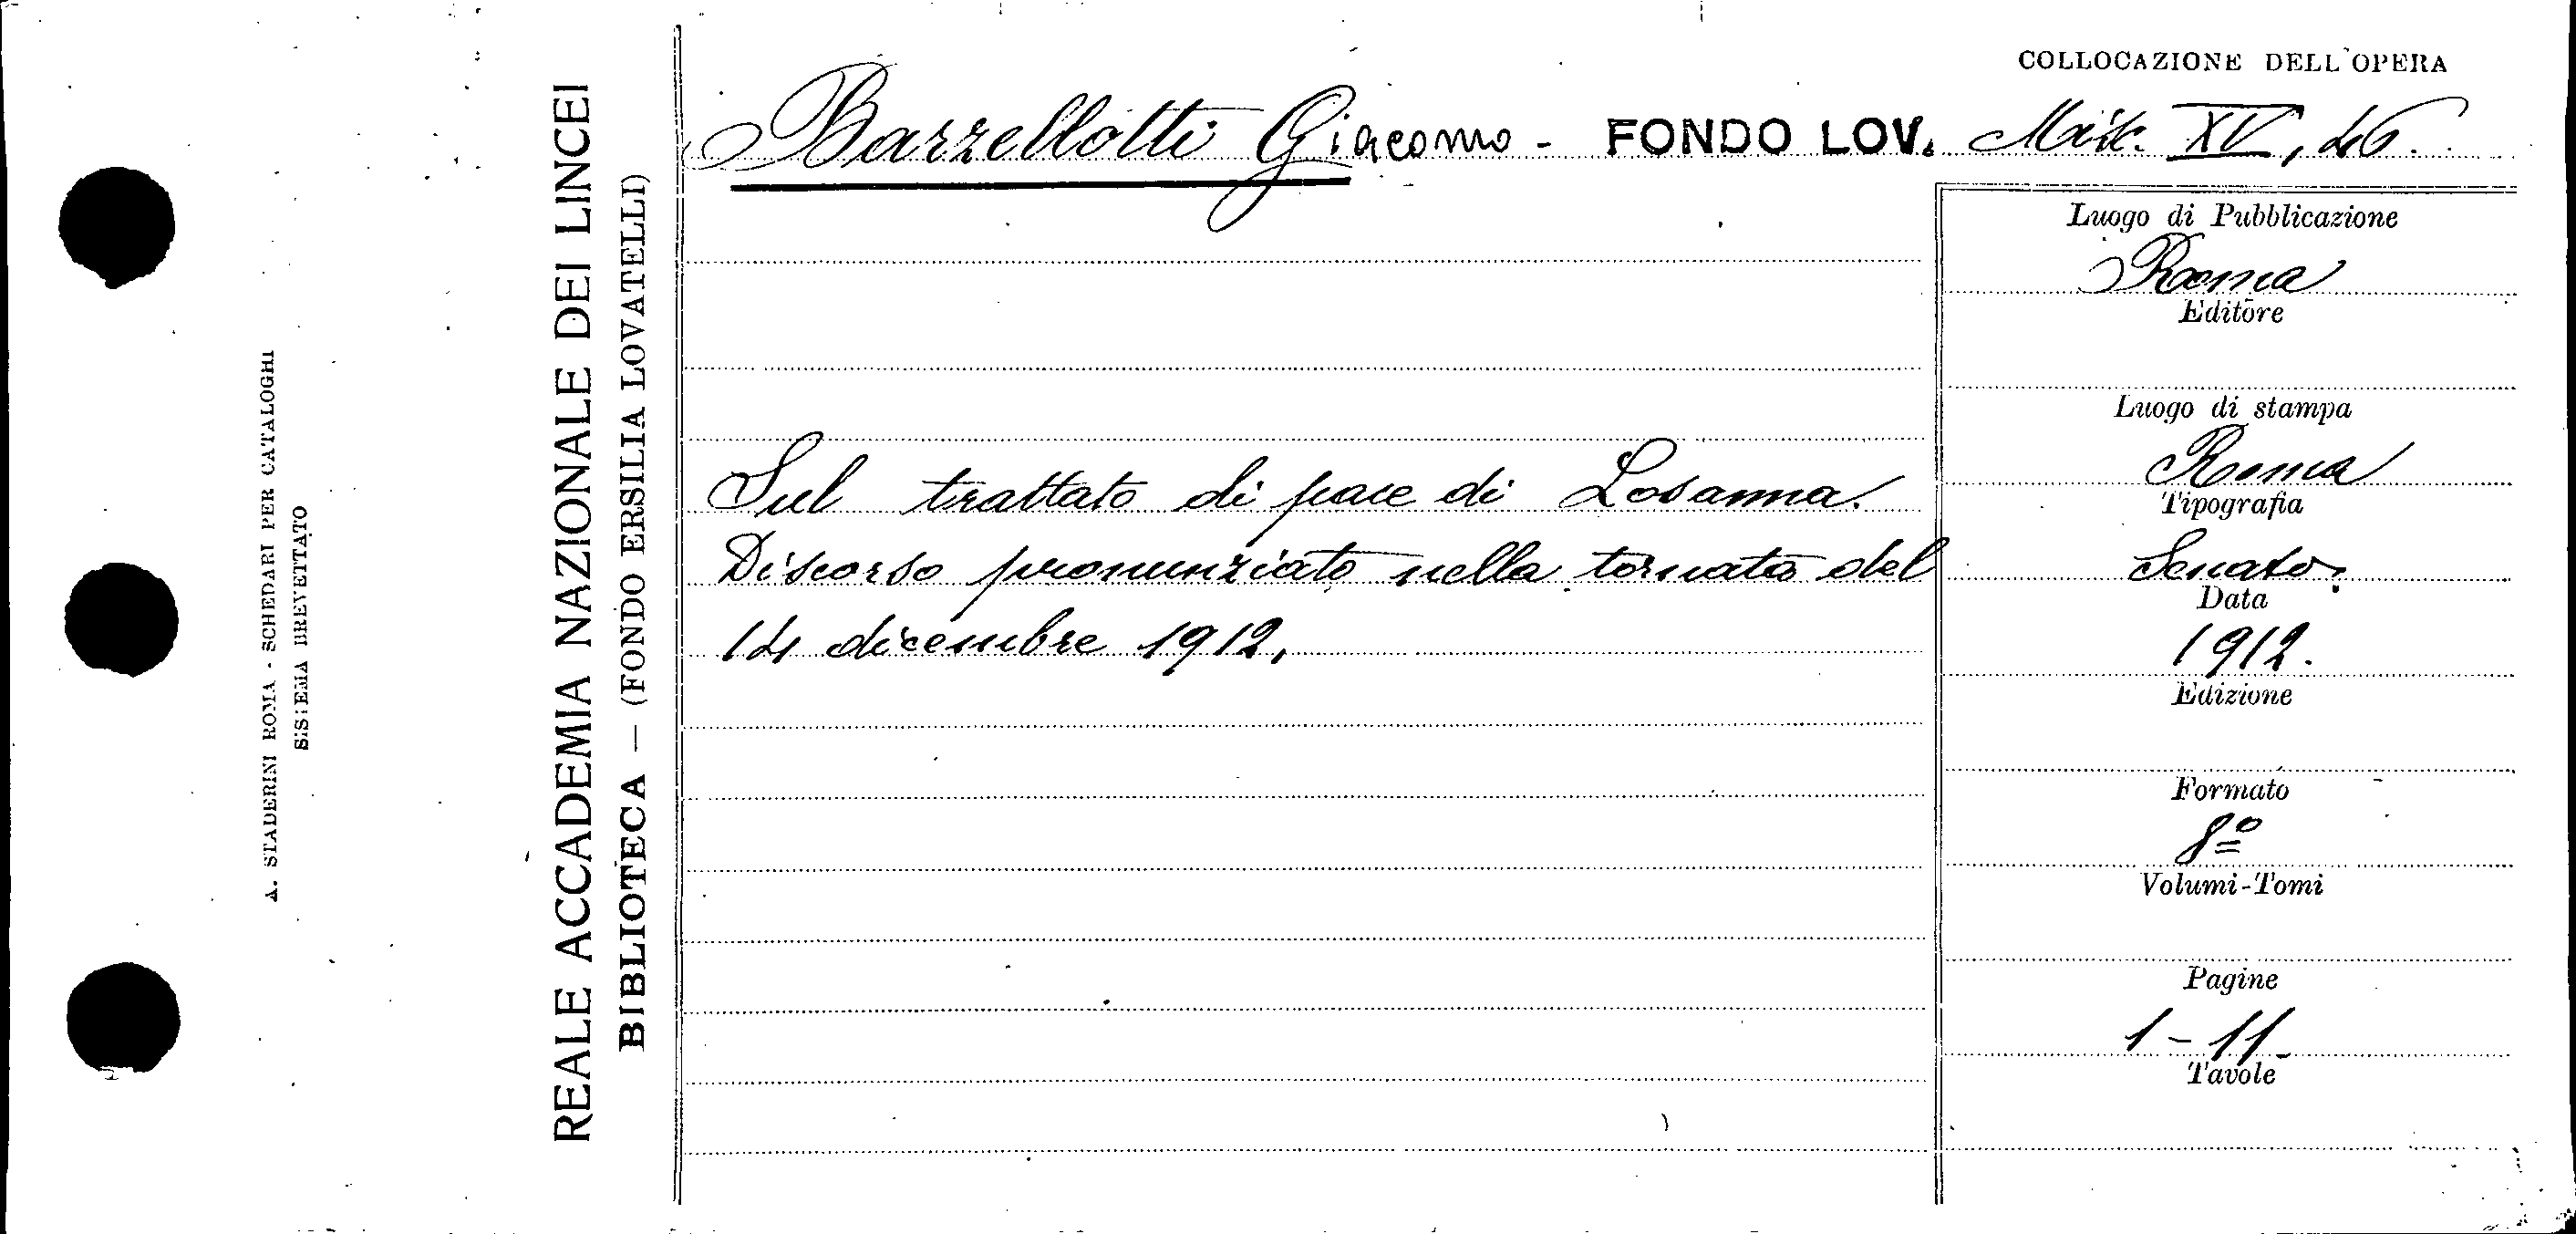 COLLOCAZIONE DELL'OPERA
Barzellotti Giacomo - FONDO LOV. Misc. XV, 46.
Sul trattato di pace di Losanna.
Discorso pronunziato nella tornata del
14 dicembre 1912.
Luogo di Pubblicazione
Roma
Editore
Luogo di stampa
Roma
Tipografia
Senato.
Data
1912.
Edizione
Formato
8º
Volumi-Tomi
Pagine
1-11
Tavole
REALE ACCADEMIA NAZIONALE DEI LINCEI
BIBLIOTECA — (FONDO ERSILIA LOVATELLI)
A. STADERINI ROMA - SCHEDARI PER CATALOGHI
SISTEMA BREVETTATO